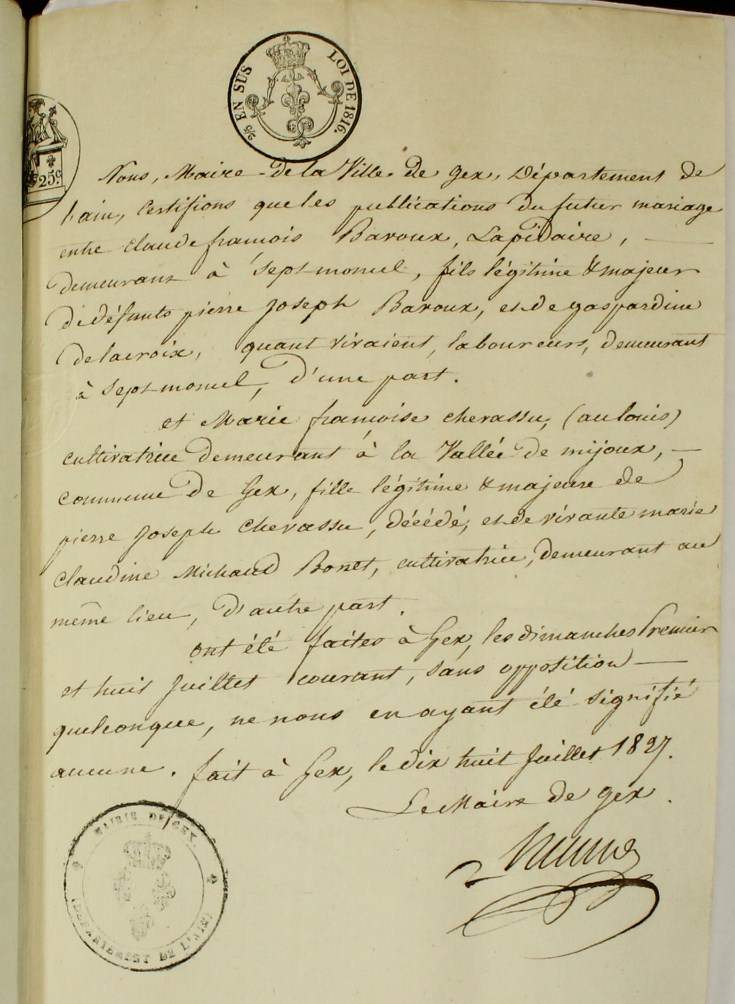 2/10 EN SUS LOI DE 1816.
25 c.
Nous, Maire de la Ville de Gex, Département de
l'ain, Certifions que les publications du futur mariage
entre Claude françois Baroux, Lapidaire,
demeurant à Septmoncel, fils légitime & majeur
de défunts pierre Joseph Baroux, et de gaspardine
delacroix, quant vivaient, laboureurs, demeurant
à Septmoncel, d'une part.
et Marie françoise chevassu, (au louis)
cultivatrice demeurant à la Vallée de mijoux,
commune de Gex, fille légitime & majeure de
pierre Joseph Chevassu, décédé, et de vivante marie
Claudine Michaud Bonet, cultivatrice, demeurant au
même lieu, d'autre part.
ont été faites à Gex, les dimanches Premier
et huit Juillet courant, sans opposition
quelconque, ne nous en ayant été signifié
aucune. fait à Gex, le dix huit Juillet 1827.
Le Maire de gex.
MAIRIE DE GEX.
(DÉPARTEMENT DE L'AIN)